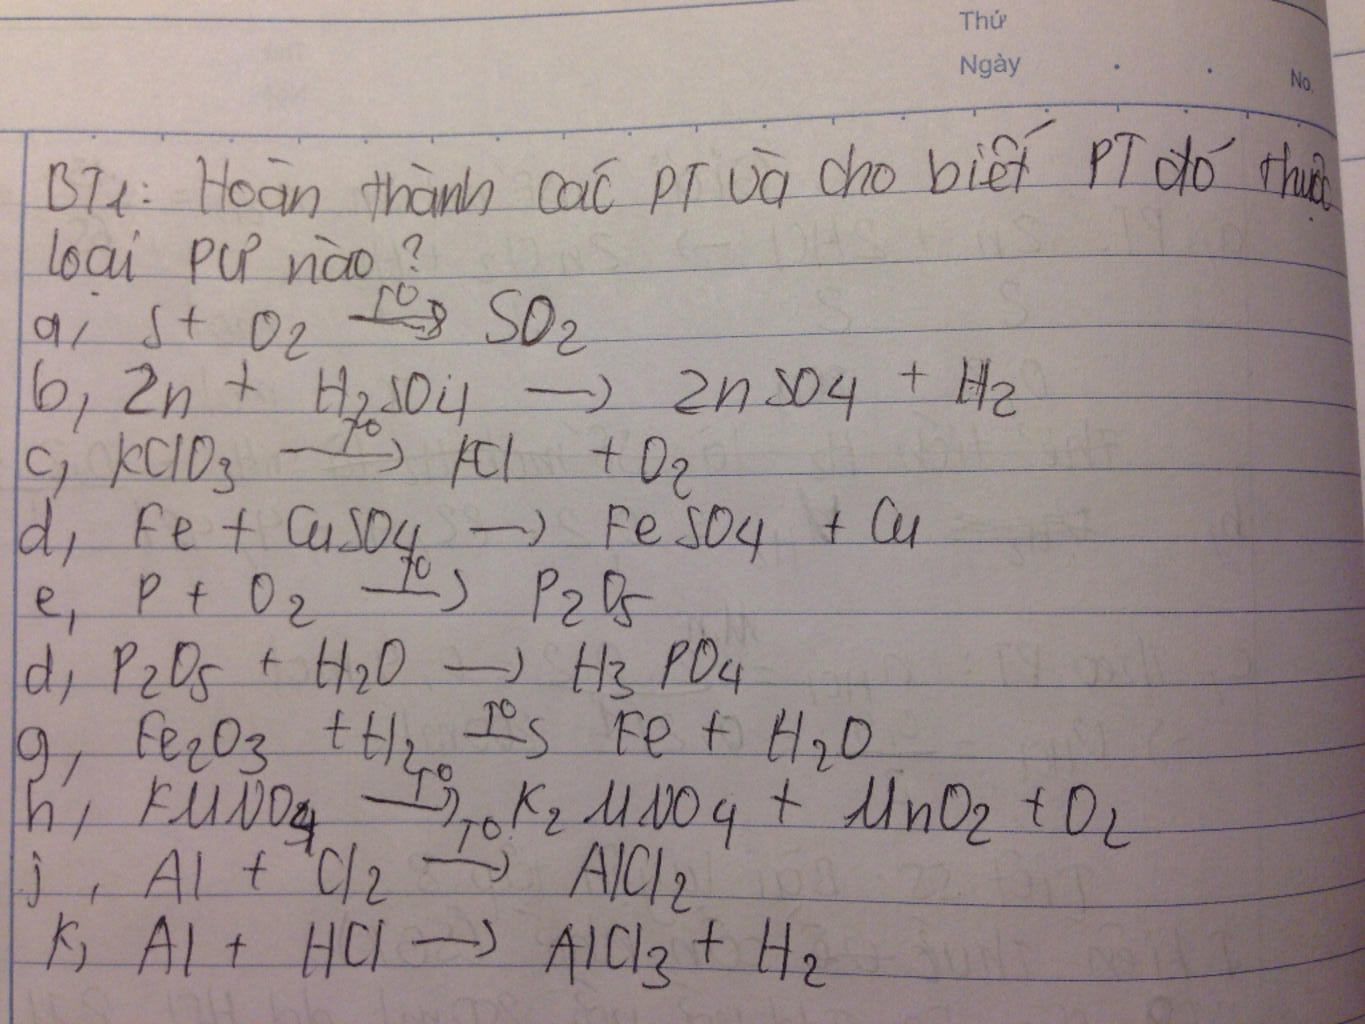 Thứ
Ngày
No.
BT1: Hoàn thành các PT và cho biết PT đó thuộc
loại PƯ nào?
a, S + O2 —T0→ SO2
b, Zn + H2SO4 → ZnSO4 + H2
c, KClO3 —T0→ KCl + O2
d, Fe + CuSO4 → FeSO4 + Cu
e, P + O2 —T0→ P2O5
d, P2O5 + H2O → H3PO4
g, Fe2O3 + H2 —T0→ Fe + H2O
h, KMNO4 —T0→ K2MNO4 + MnO2 + O2
j, Al + Cl2 —T0→ AlCl2
k, Al + HCl → AlCl3 + H2